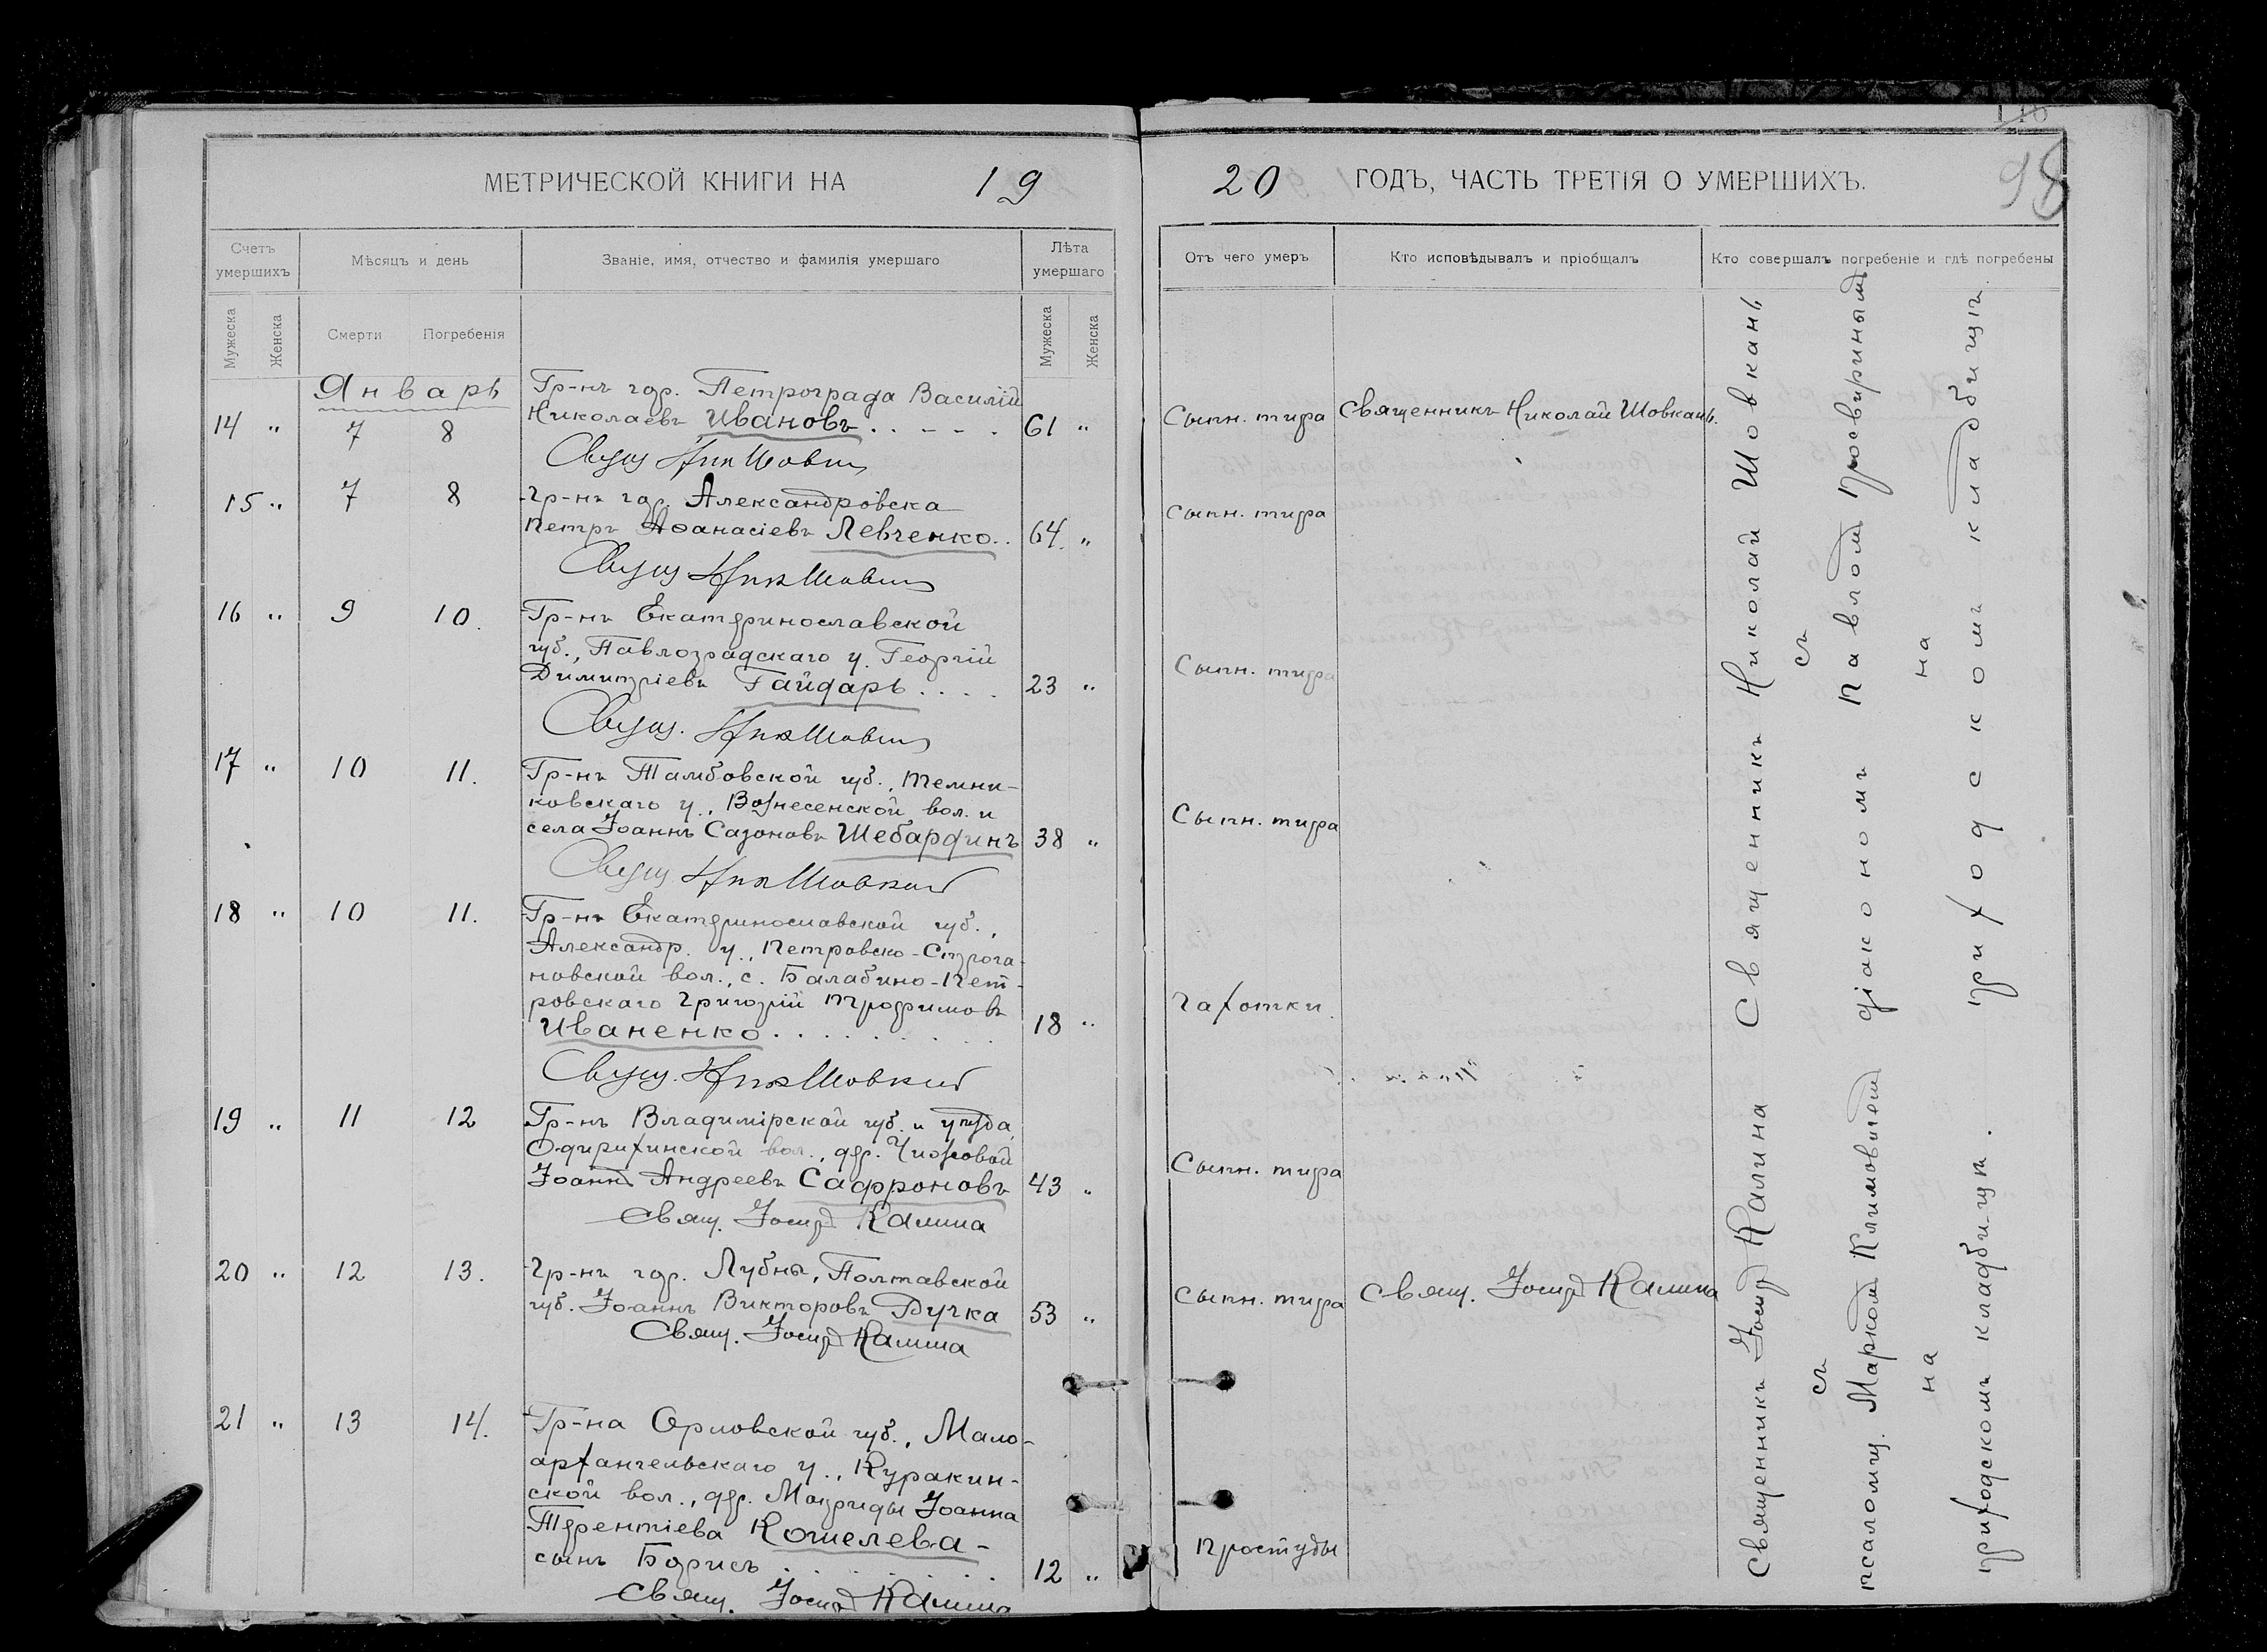 МЕТРИЧЕСКОЙ КНИГИ НА 19
20 ГОДЪ, ЧАСТЬ ТРЕТІЯ О УМЕРШИХЪ.
98
Счетъ умершихъ
Мѣсяцъ и день
Званіе, имя, отчество и фамилія умершаго
Лѣта умершаго
Мужеска
Женска
Смерти
Погребенія
Мужеска
Женска
Отъ чего умеръ
Кто исповѣдывалъ и пріобщалъ
Кто совершалъ погребеніе и гдѣ погребены
Январь
Гр-нъ гор. Петрограда Василій
14 " 7 8 Николаевъ Ивановъ . . - - . 61 "
Свящ Ник Шовкан
15 " 7 8 Гр-нъ гор. Александровска
Петръ Аѳанасіевъ Левченко . . 64 "
Свящ. Ник Шовкан
16 " 9 10. Гр-нъ Екатеринославской
губ., Павлоградскаго у. Георгій
Димитріевъ Гайдарь . . . . 23 "
Свящ. Ник Шовкан
17 " 10 11. Гр-нъ Тамбовской губ., Темни-
ковскаго у., Вознесенской вол. и
села Іоаннъ Сазоновъ Шебардинъ 38 "
Свящ Ник Шовкан
18 " 10 11. Гр-нъ Екатеринославской губ.,
Александр. у., Петровско-Строга-
новской вол., с. Балабино-Пет-
ровскаго Григорій Трофимовъ
Иваненко . . . . . . . . . 18 "
Свящ. Ник Шовкан
19 " 11 12 Гр-нъ Владимірской губ. и уѣзда,
Одерихинской вол., дер. Чижовой
Іоаннъ Андреевъ Сафроновъ 43 "
Свящ. Іосиф Калина
20 " 12 13. Гр-нъ гор. Лубны, Полтавской
губ. Іоаннъ Викторовъ Дучка 53 "
Свящ. Іосиф Калина
21 " 13 14. Гр-на Орловской губ., Мало-
архангельскаго у., Куракин-
ской вол., дер. Іоанна
Терентіева Кошелева -
сынъ Борисъ . . . . . . . 12 "
Свящ. Іосиф Калина
Сыпн. тифа
Священникъ Николай Шовкань.
Сыпн. тифа
Сыпн. тифа
Сыпн. тифа
Чахотки.
Сыпн. тифа
Сыпн. тифа
Свящ. Іосиф Калина
Простуды
Священникъ Николай Шовкань
съ
діакономъ Павлом Просвириным
на
приходскомъ кладбищѣ
Священникъ Іосиф Калина
съ
псаломщ. Марком Климовичем
на
приходскомъ кладбищѣ.